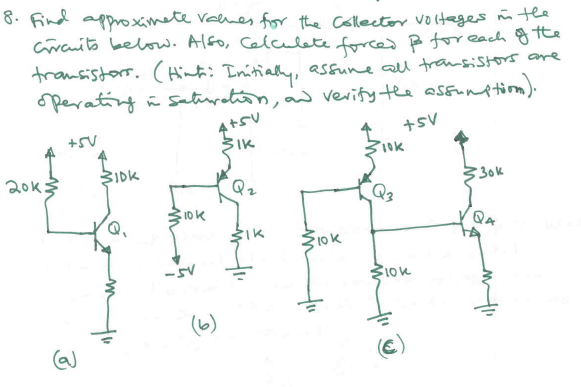 8. Find approximate values for the collector voltages in the
circuits below. Also, calculate forced β for each of the
transistors. (Hint: Initially, assume all transistors are
operating in saturation, and verify the assumption).
+5V
+5V
+5V
1K
10K
20K
10K
30K
Q2
Q3
Q1
10K
Q4
1K
10K
-5V
10K
(b)
(c)
(a)